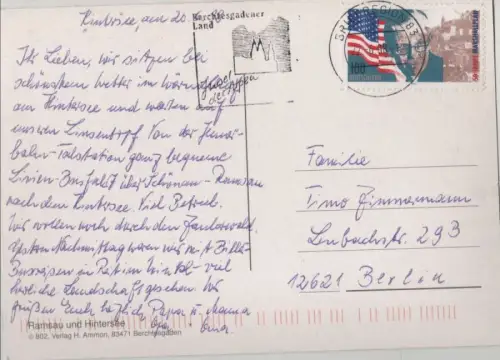 Hintersee, am 20.
Ihr Lieben, wir sitzen bei
schönstem Wetter im
am Hintersee und warten auf
unseren Linseneintopf. Von der Jenner-
bahn-Talstation ganz bequeme
Linien-Busfahrt über Schönau - Ramsau
nach dem Hintersee. Viel Betrieb.
Wir wollen noch durch den Zauberwald.
Gestern Nachmittag waren wir mit
viel
herrliche Landschaft gesehen. Wir
grüßen Euch herzlich Papa u. Mama
Opa Oma
Ramsau und Hintersee
© 902, Verlag H. Ammon, 83471 Berchtesgaden
Berchtesgadener
Land
BRIEFREGION 83
100
Familie
Timo Zimmermann
Lenbachstr. 29B
12621 Berlin